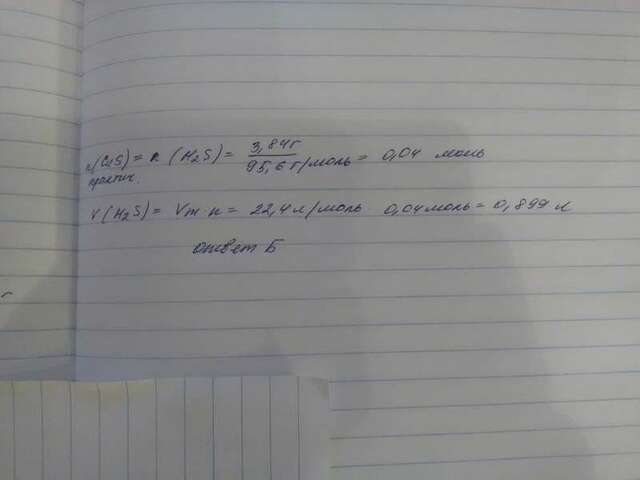 n(CuS) = n (H₂S) = 3,84г / 95,6 г/моль = 0,04 моль
практич.
V(H₂S) = Vm n = 22,4 л/моль 0,04 моль = 0,899 л
ответ Б